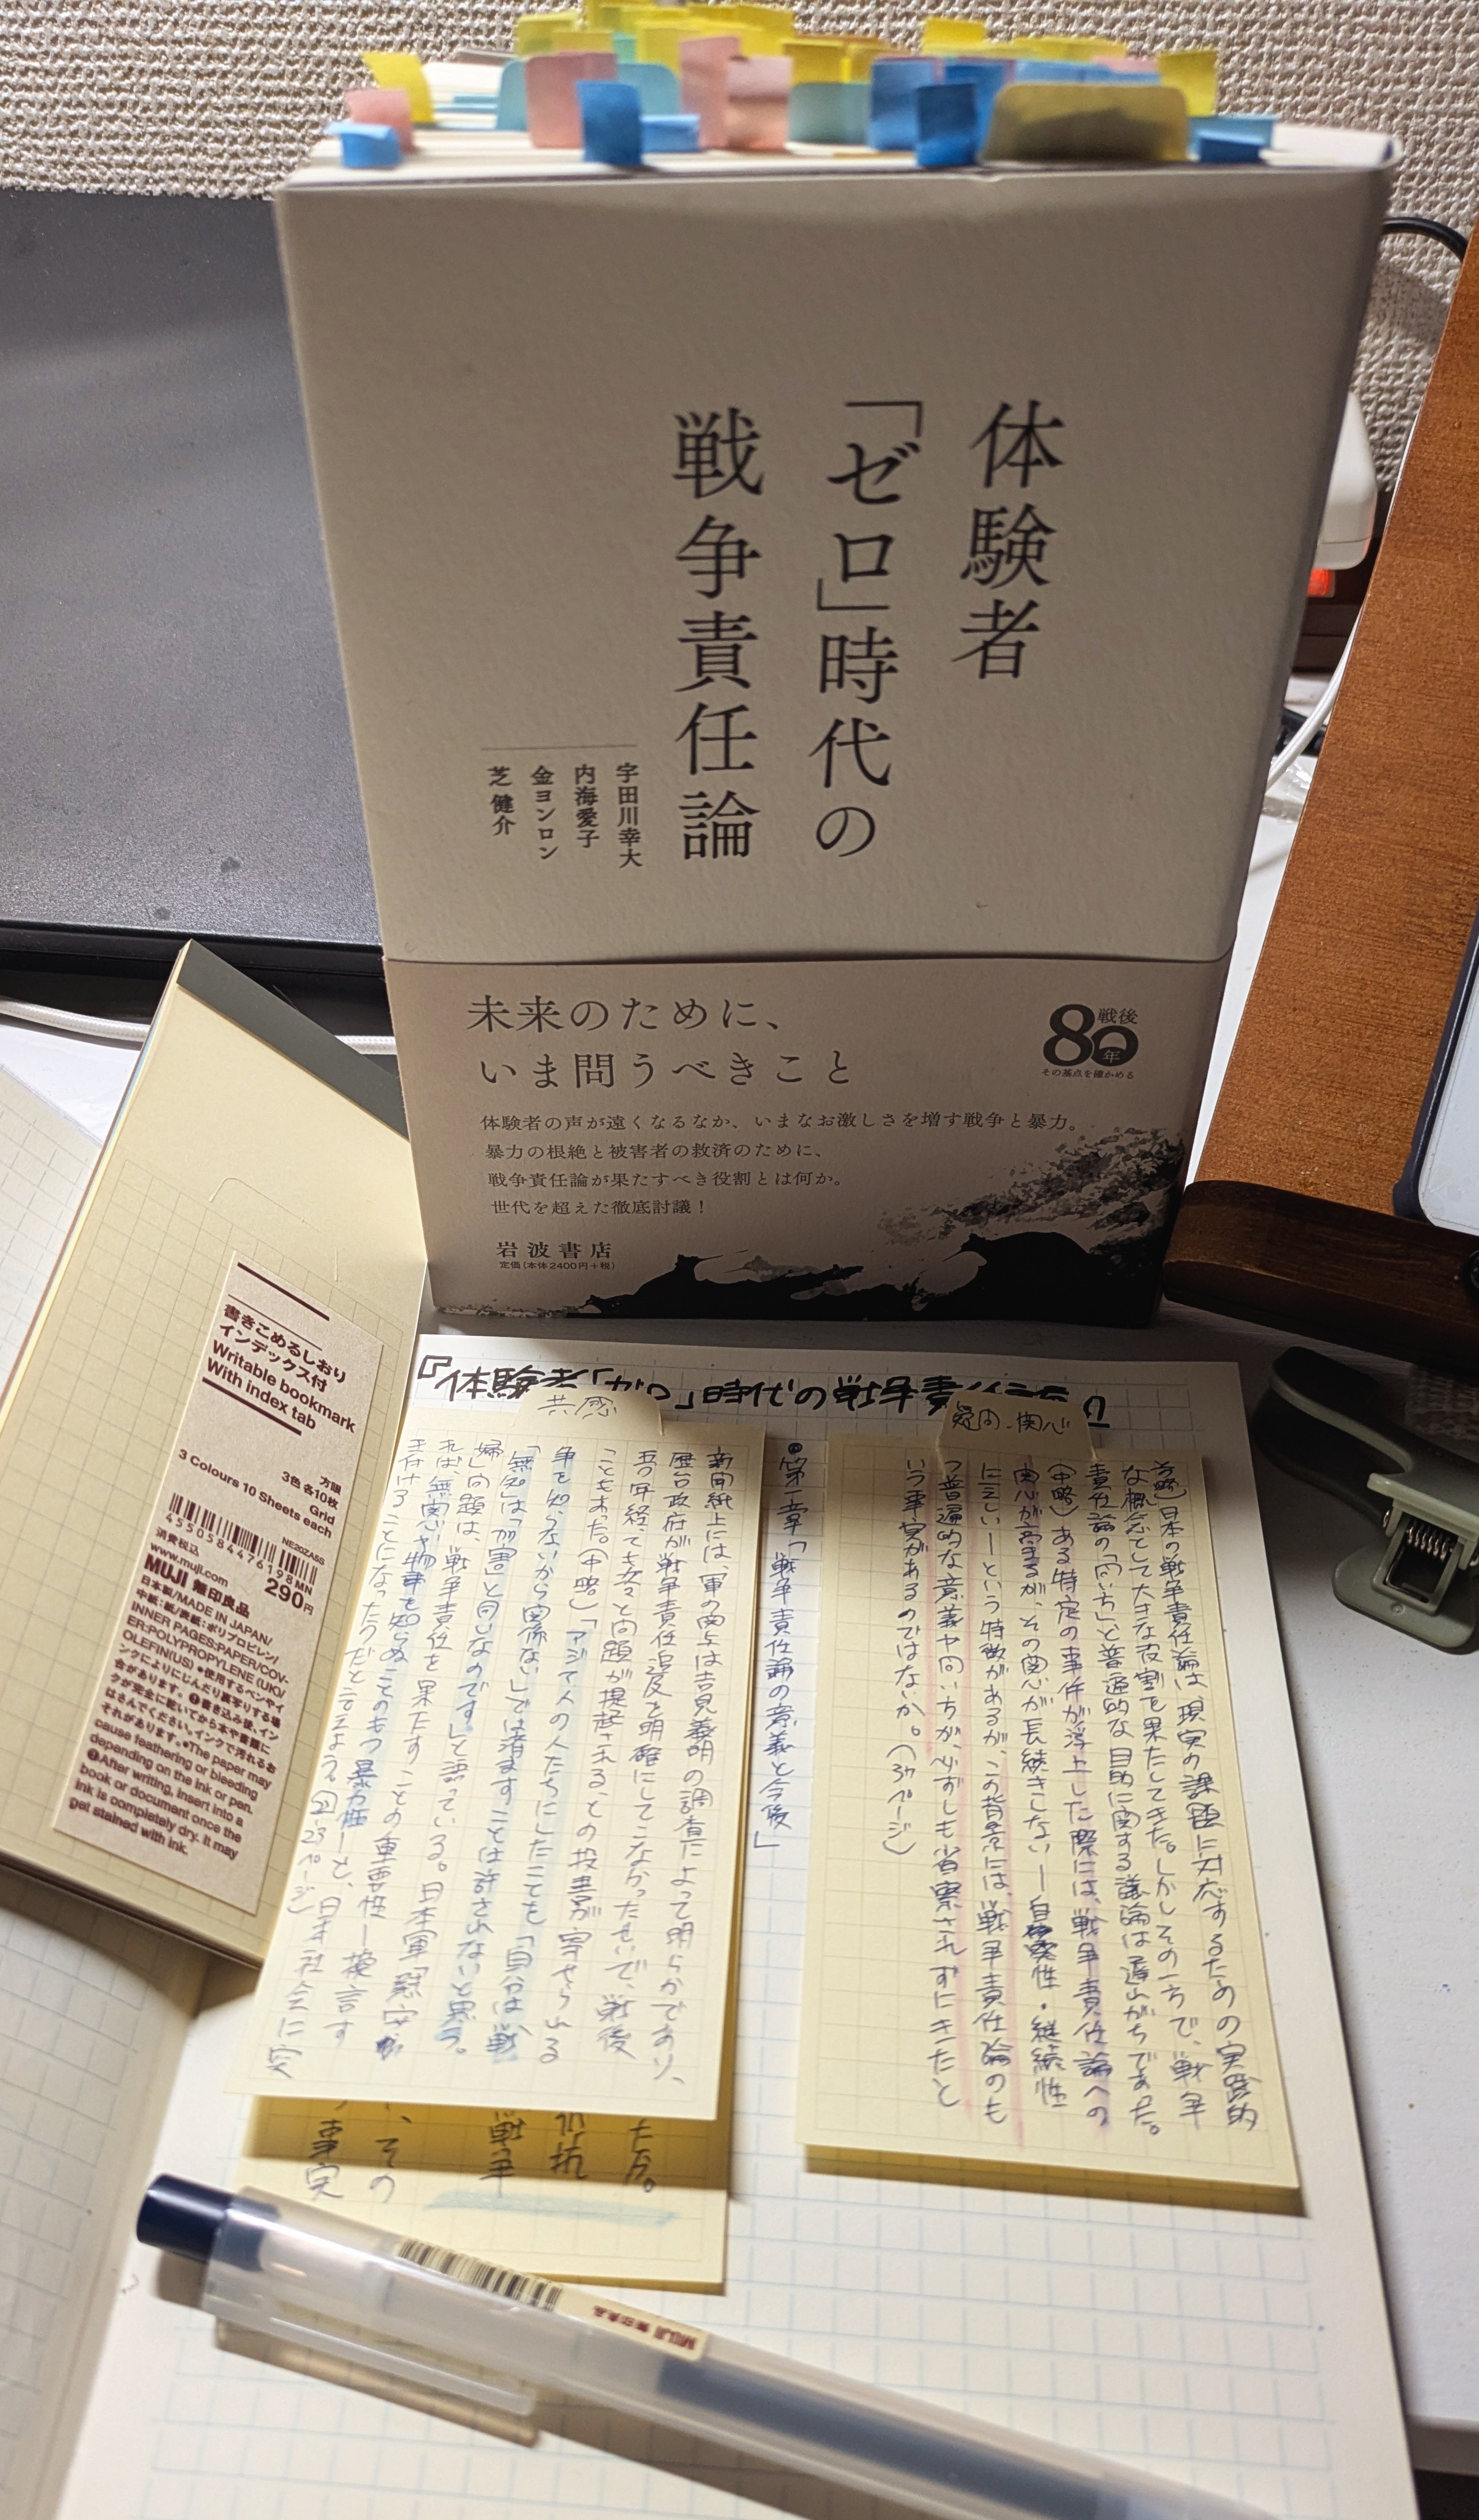 体験者
「ゼロ」時代の
戦争責任論
宇田川幸大
内海愛子
金ヨンロン
芝健介
未来のために、
いま問うべきこと
戦後
80年
その基点を確かめる
体験者の声が遠くなるなか、いまなお激しさを増す戦争と暴力。
暴力の根絶と被害者の救済のために、
戦争責任論が果たすべき役割とは何か。
世代を超えた徹底討議！
岩波書店
定価（本体2400円＋税）
書きこめるしおり
インデックス付
Writable bookmark
With index tab
方眼
3色 各10枚
Grid
3 Colours 10 Sheets each
4550584476198 MN
NE20ZA5S
消費税込 290円
www.muji.com
MUJI 無印良品
日本製/MADE IN JAPAN/
中紙：紙/表紙：ポリプロピレン/
INNER PAGES:PAPER/COV-
ER:POLYPROPYLENE (UK)/
OLEFIN(US) ●使用するペンやイ
ンクによりにじんだり裏写りする場
合があります。❶書き込み後、イン
クが完全に乾いてから本や書類に
はさんでください。インクで汚れるお
それがあります。●The paper may
cause feathering or bleeding
depending on the ink or pen.
❶After writing, insert into a
book or document once the
ink is completely dry. It may
get stained with ink.
『体験者「ゼロ」時代の戦争責
疑問・関心
日本の戦争責任論は、現実の課題に対応するための実践的
な概念として大きな役割を果たしてきた。しかしその一方で、戦争
責任論の「問い」と普遍的な目的に関する議論は遅れがちであった。
（中略）ある特定の事件が浮上した際には、戦争責任論への
関心が高まるが、その関心が長続きしない―自性・継続性
に乏しい―という特徴があるが、この背景には、戦争責任論のも
つ普遍的な意義や問いが、必ずしも省察されずにきたと
いう事実があるのではないか。（37ページ）
●第一章「戦争責任論の意義と今後」
共感
新聞紙上には、軍の関与は吉見義明の調査によって明らかであり、
歴代政府が戦争責任追及を明確にしてこなかったせいで、戦後
五〇年経っても次々と問題が提起されるとの投書が寄せられる
こともあった。（中略）「アジアの人たちにしたことも「自分は戦
争を知らないから関係ない」では済ますことは許されないと思う。
「無知」は「加害」と同じなのです」と語っている。日本軍「慰安
婦」問題は、戦争責任を果たすことの重要性―換言す
れば、無関心や物事を知らぬことのもつ暴力性―を、日本社会に突
き付けることになったのだと言えよう。（22-23ページ）
た。
抵抗
戦争
、その
事実
MUJI 無印良品